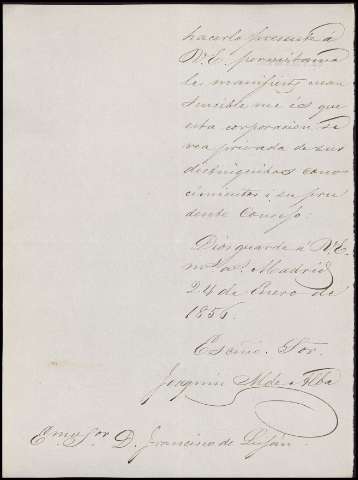 hacerlo presente á
V. E. permitame
le manifieste cuan
sensible me es que
esta corporacion se
vea privada de sus
distinguidos cono-
cimientos i su pru
dente Consejo:
Dios guarde á V. E.
ms. as. Madrid
24 de Enero de
1856.
Escmo. Sor.
Joaquin M. de Alba
Esmo Sor D. Francisco de Luján.